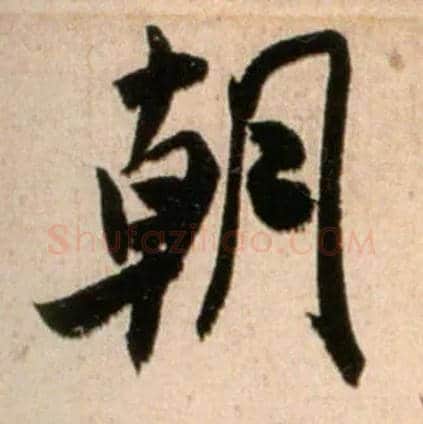 朝
Shufazidao.COM